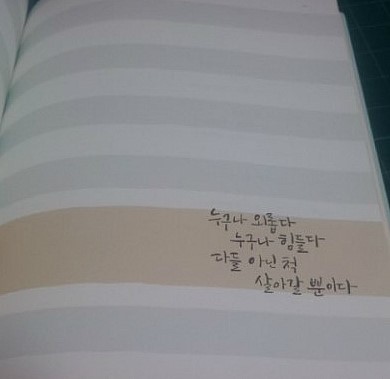 누구나 외롭다
누구나 힘들다
다들 아닌 척
살아갈 뿐이다